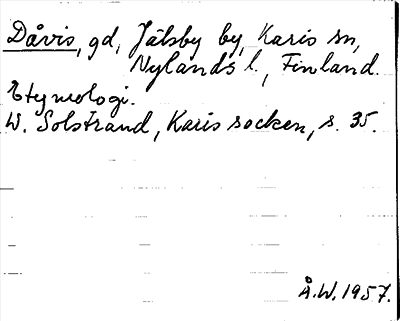 Dåvis, gd, Jätsby by, Karis sn,
Nylands l., Finland.
Etymologi.
W. Solstrand, Karis socken, s. 35.
Å.W. 1957.